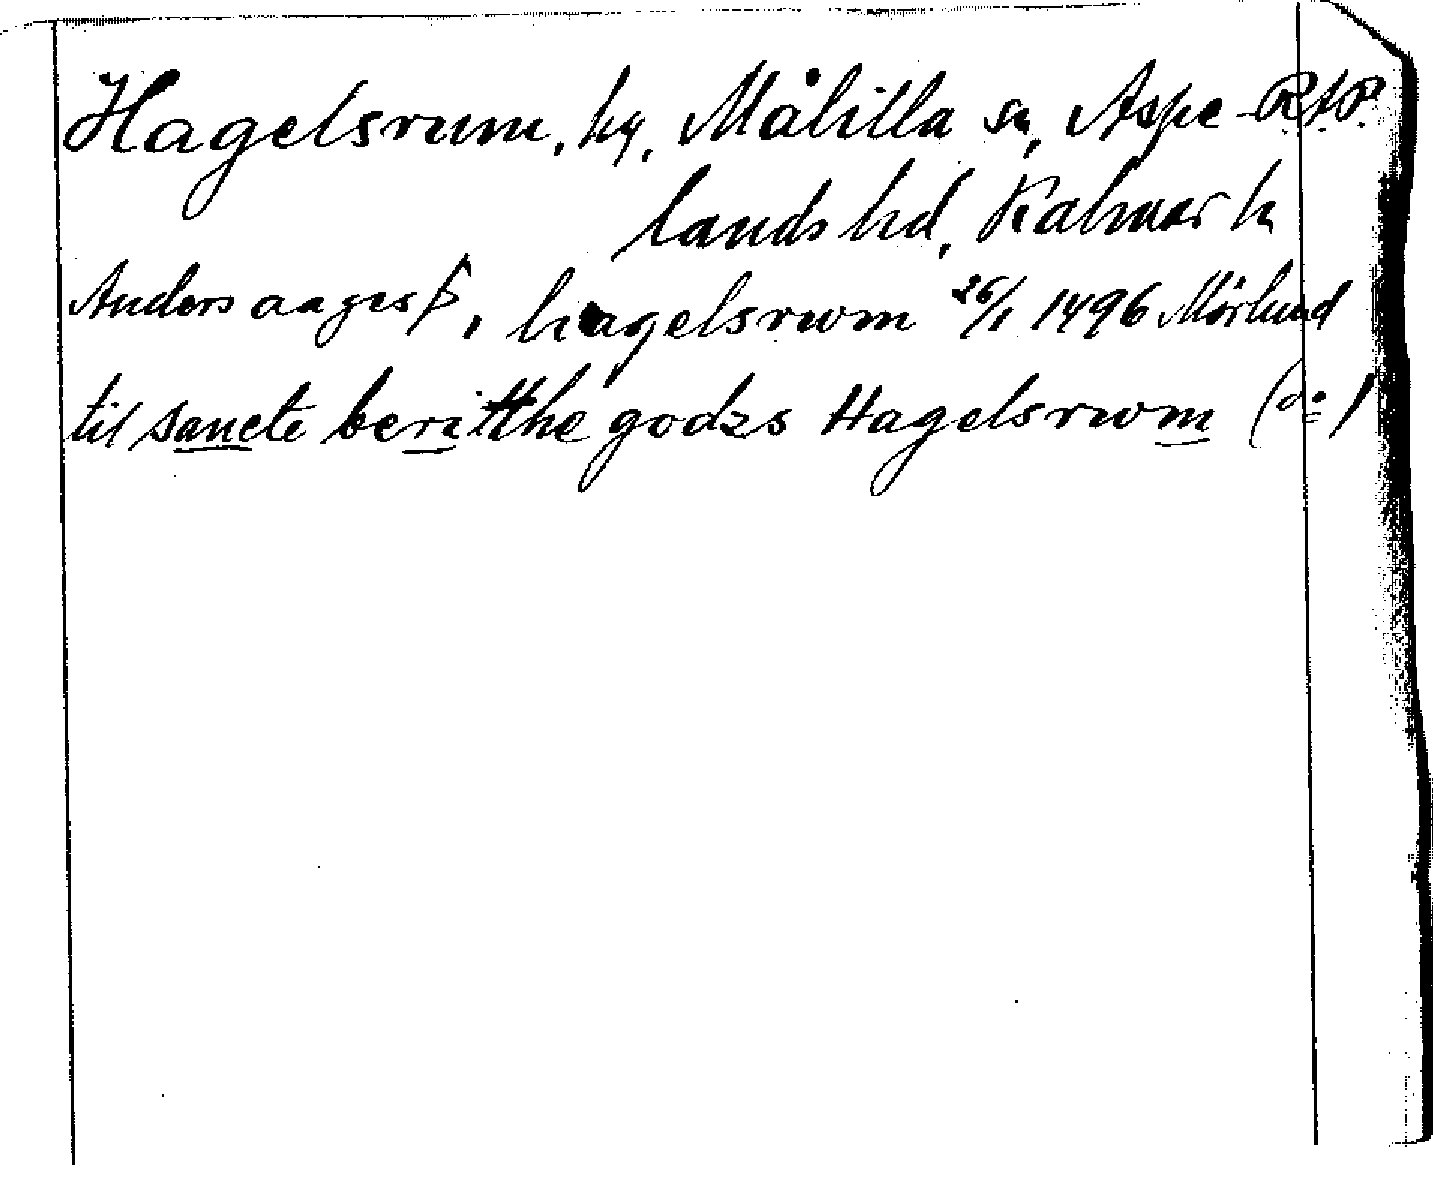 Hagelsrum, by, Målilla sn, Aspe-
lands hd, Kalmar ln
Anders aagesß, hagelsrwm 26/1 1496 Mörlund
til sancte beritthe godzs Hagelsrwm (do)